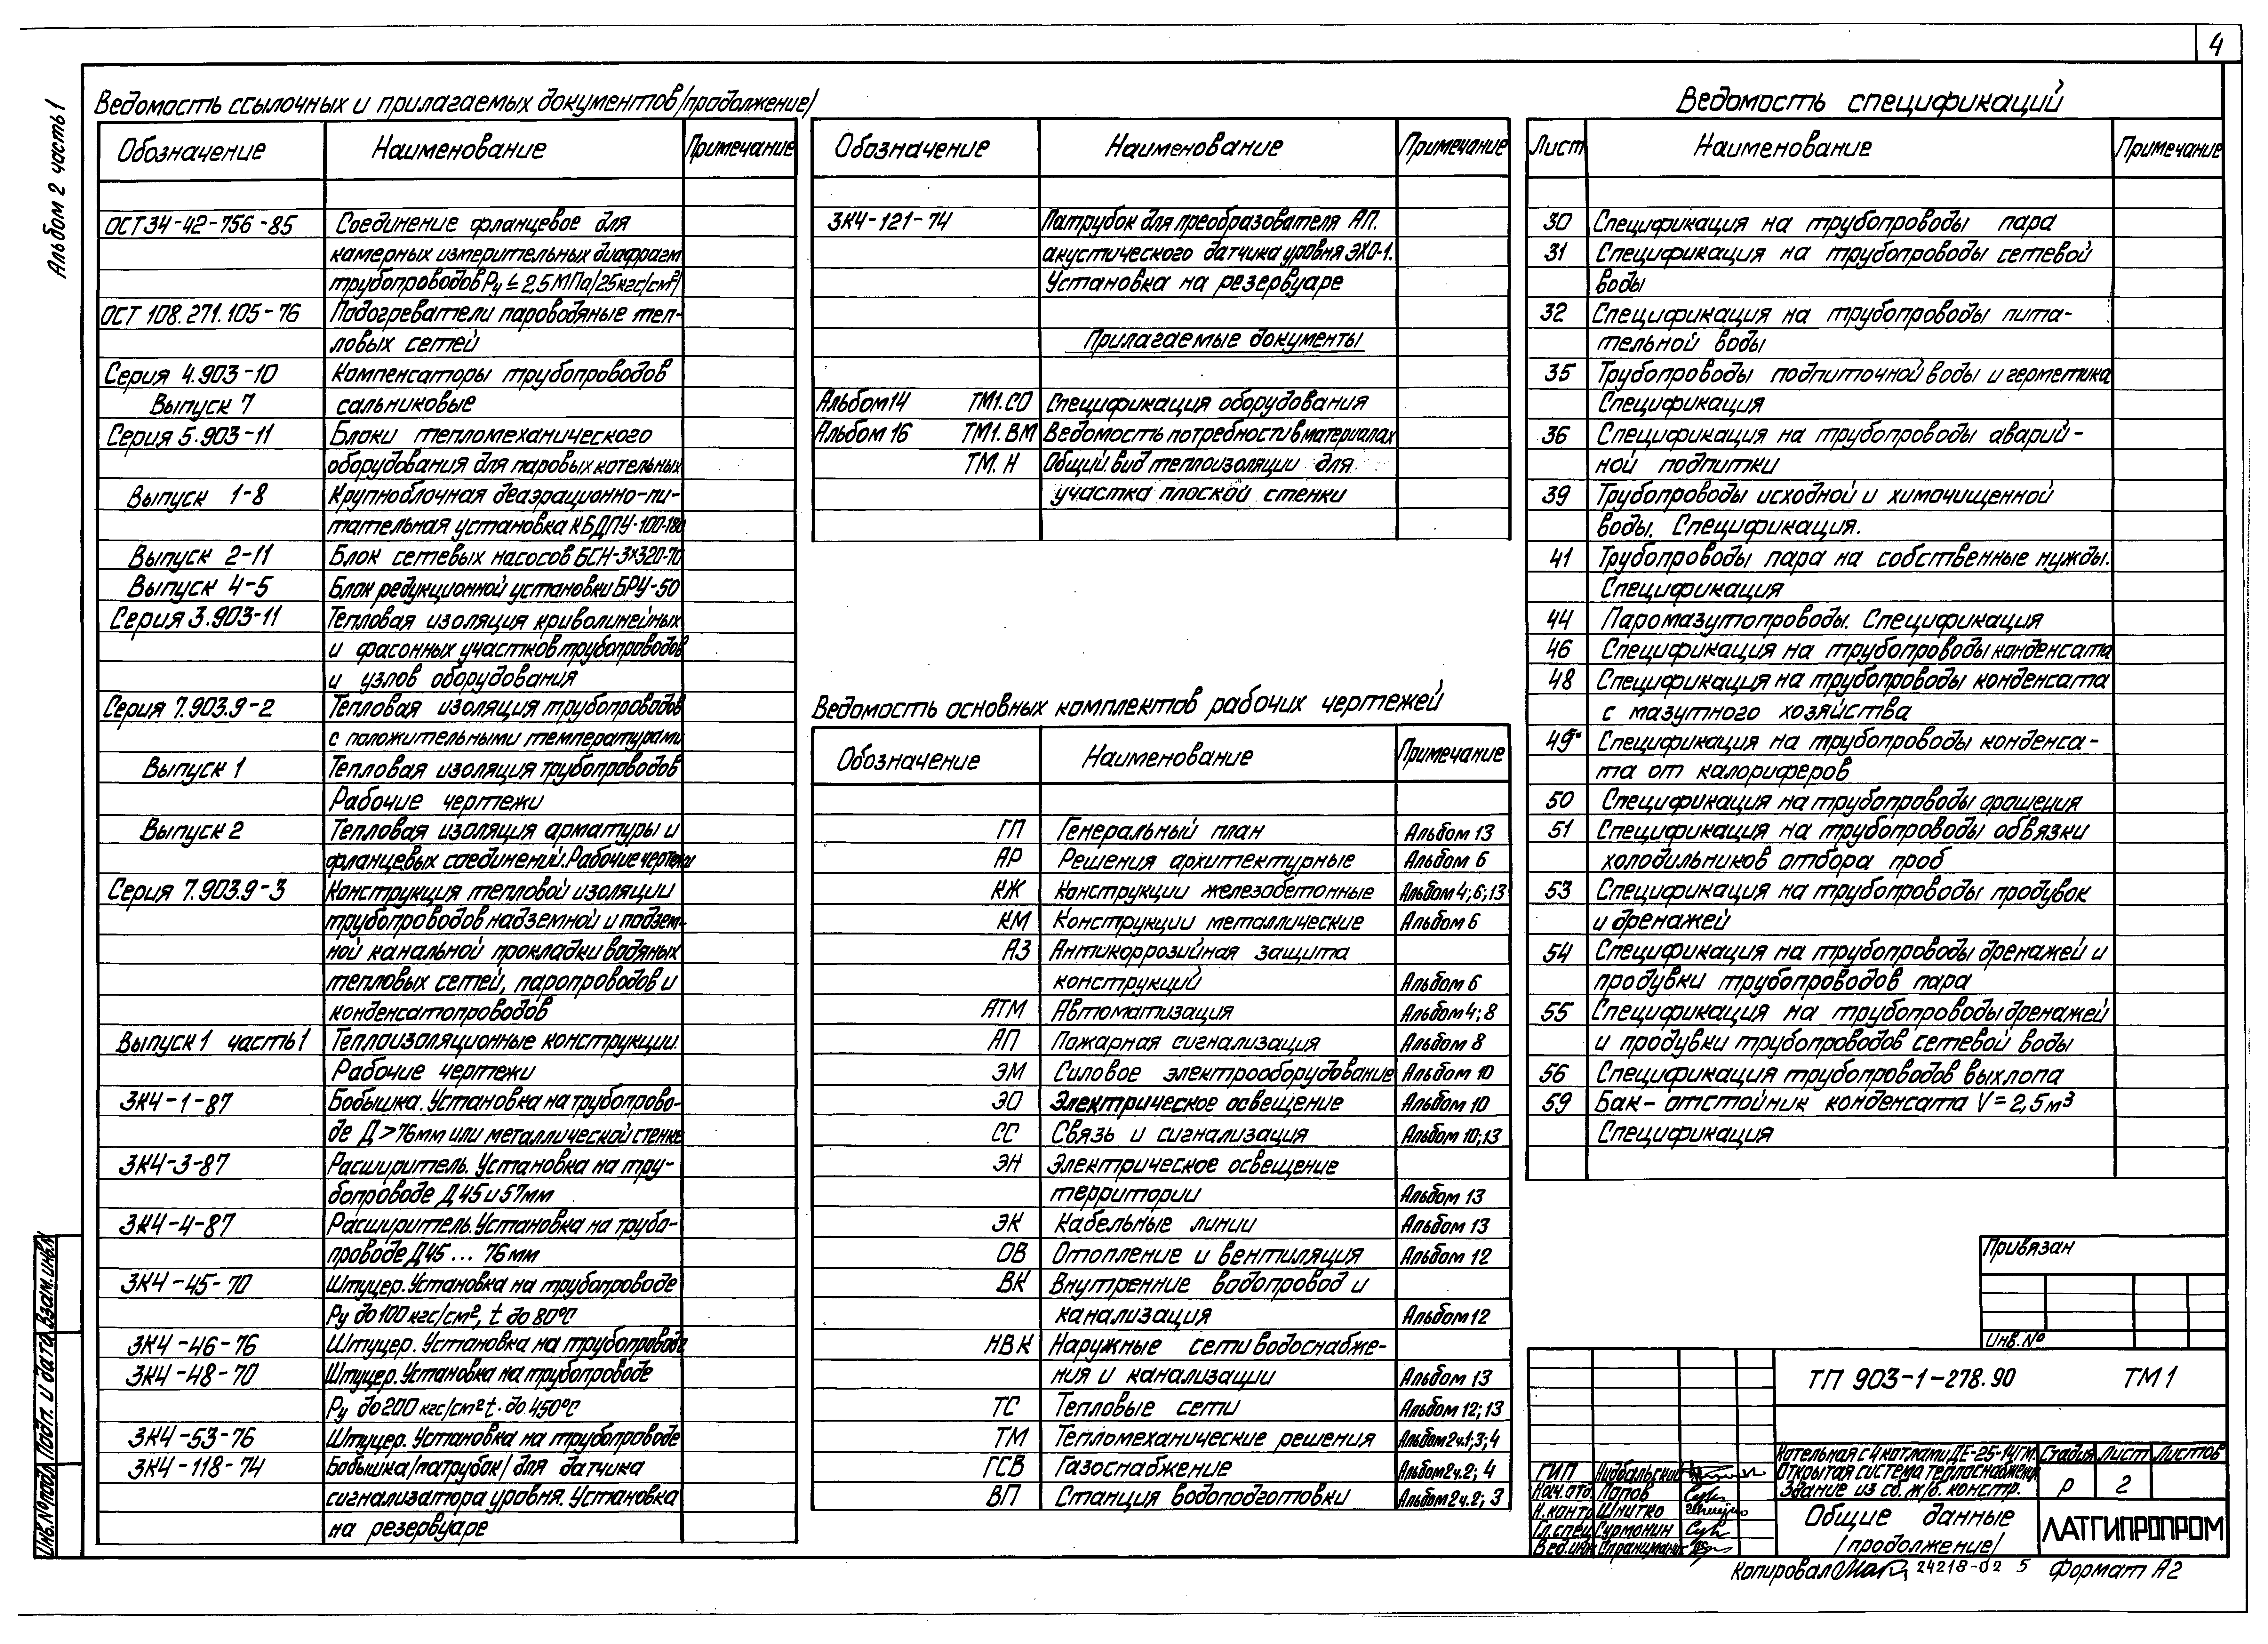 4
Альбом 2 часть 1
Ведомость ссылочных и прилагаемых документов /продолжение/
Обозначение Наименование Примечание
ОСТ 34-42-756-85 Соединение фланцевое для
камерных измерительных диафрагм
трубопроводов Ру ≤ 2,5 МПа/25кгс/см²/
ОСТ 108.271.105-76 Подогреватели пароводяные теп-
ловых сетей
Серия 4.903-10 Компенсаторы трубопроводов
Выпуск 7 сальниковые
Серия 5.903-11 Блоки тепломеханического
оборудования для паровых котельных
Выпуск 1-8 Крупноблочная деаэрационно-пи-
тательная установка КБДПУ-100-180
Выпуск 2-11 Блок сетевых насосов БСН-3х320-70
Выпуск 4-5 Блок редукционной установки БРУ-50
Серия 3.903-11 Тепловая изоляция криволинейных
и фасонных участков трубопроводов
и узлов оборудования
Серия 7.903.9-2 Тепловая изоляция трубопроводов
с положительными температурами
Выпуск 1 Тепловая изоляция трубопроводов
Рабочие чертежи
Выпуск 2 Тепловая изоляция арматуры и
фланцевых соединений. Рабочие чертежи
Серия 7.903.9-3 Конструкция тепловой изоляции
трубопроводов надземной и подзем-
ной канальной прокладки водяных
тепловых сетей, паропроводов и
конденсатопроводов
Выпуск 1 часть 1 Теплоизоляционные конструкции.
Рабочие чертежи
ЗК4-1-87 Бобышка. Установка на трубопрово-
де Д>76мм или металлической стенке
ЗК4-3-87 Расширитель. Установка на тру-
бопроводе Д 45 и 57мм
ЗК4-4-87 Расширитель. Установка на трубо-
проводе Д45 ... 76мм
ЗК4-45-70 Штуцер. Установка на трубопроводе
Ру до 100 кгс/см², t до 80°С
ЗК4-46-76 Штуцер. Установка на трубопроводе
ЗК4-48-70 Штуцер. Установка на трубопроводе
Ру до 200 кгс/см² t до 450°С
ЗК4-53-76 Штуцер. Установка на трубопроводе
ЗК4-118-74 Бобышка /патрубок/ для датчика
сигнализатора уровня. Установка
на резервуаре
Обозначение Наименование Примечание
ЗК4-121-74 Патрубок для преобразователя АП.
акустического датчика уровня ЭХО-1.
Установка на резервуаре
Прилагаемые документы
Альбом 14 ТМ1.СО Спецификация оборудования
Альбом 16 ТМ1.ВМ Ведомость потребности в материалах
ТМ.Н Общий вид теплоизоляции для
участка плоской стенки
Ведомость основных комплектов рабочих чертежей
Обозначение Наименование Примечание
ГП Генеральный план Альбом 13
АР Решения архитектурные Альбом 6
КЖ Конструкции железобетонные Альбом 4; 6; 13
КМ Конструкции металлические Альбом 6
АЗ Антикоррозийная защита
конструкций Альбом 6
АТМ Автоматизация Альбом 4; 8
АП Пожарная сигнализация Альбом 8
ЭМ Силовое электрооборудование Альбом 10
ЭО Электрическое освещение Альбом 10
СС Связь и сигнализация Альбом 10; 13
ЭН Электрическое освещение
территории Альбом 13
ЭК Кабельные линии Альбом 13
ОВ Отопление и вентиляция Альбом 12
ВК Внутренние водопровод и
канализация Альбом 12
НВК Наружные сети водоснабже-
ния и канализации Альбом 13
ТС Тепловые сети Альбом 12; 13
ТМ Тепломеханические решения Альбом 2 ч.1; 3; 4
ГСВ Газоснабжение Альбом 2 ч.2; 4
ВП Станция водоподготовки Альбом 2 ч.2; 3
Ведомость спецификаций
Лист Наименование Примечание
30 Спецификация на трубопроводы пара
31 Спецификация на трубопроводы сетевой
воды
32 Спецификация на трубопроводы пита-
тельной воды
35 Трубопроводы подпиточной воды и герметика
Спецификация
36 Спецификация на трубопроводы аварий-
ной подпитки
39 Трубопроводы исходной и химочищенной
воды. Спецификация.
41 Трубопроводы пара на собственные нужды.
Спецификация
44 Паромазутопроводы. Спецификация
46 Спецификация на трубопроводы конденсата
48 Спецификация на трубопроводы конденсата
с мазутного хозяйства
49 Спецификация на трубопроводы конденса-
та от калориферов
50 Спецификация на трубопроводы орошения
51 Спецификация на трубопроводы обвязки
холодильников отбора проб
53 Спецификация на трубопроводы продувок
и дренажей
54 Спецификация на трубопроводы дренажей и
продувки трубопроводов пара
55 Спецификация на трубопроводы дренажей
и продувки трубопроводов сетевой воды
56 Спецификация трубопроводов выхлопа
59 Бак-отстойник конденсата V=2,5м³
Спецификация
Привязан
Инв.№
ТП 903-1-278.90 ТМ1
Котельная с 4 котлами ДЕ-25-14ГМ.
Открытая система теплоснабжения
Здание из сб. ж/б. констр.
Стадия Лист Листов
Р 2
ГИП Нидбальский
Нач.отд. Попов
Н.контр Шнитко
Гл.спец Сурмонин
Вед.инж
Общие данные
/продолжение/
ЛАТГИПРОПРОМ
Копировал 24218-02 5 Формат А2
Взам.инв.№
Подп. и дата
Инв.№подл.